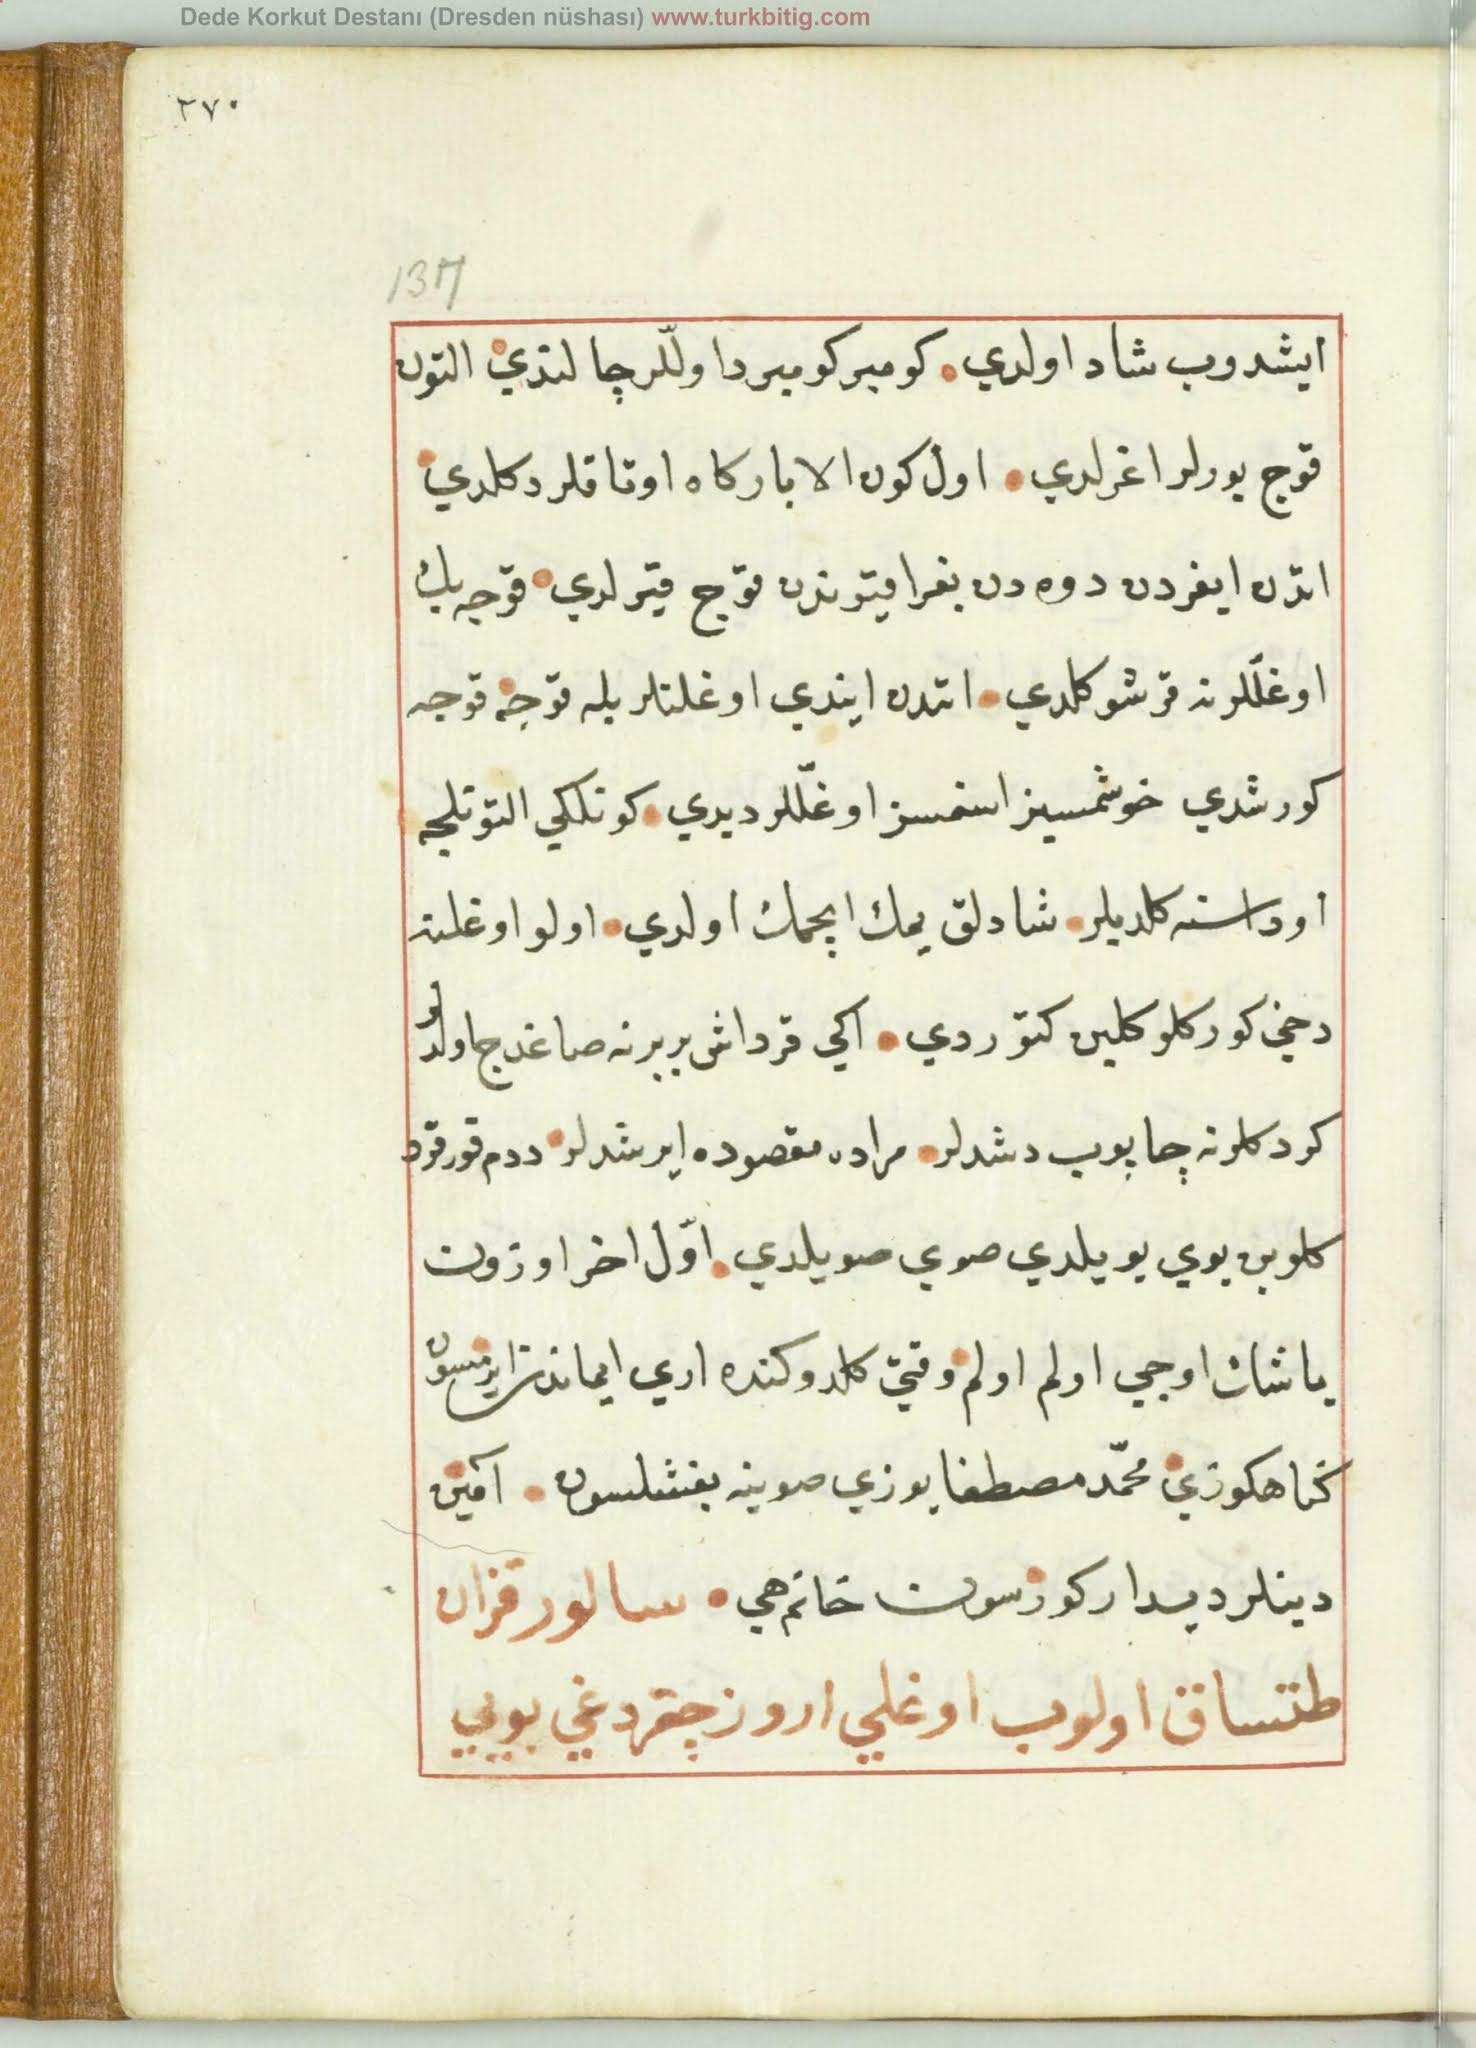 Dede Korkut Destanı (Dresden nüshası) www.turkbitig.com
۲۷۰
137
ايشدوب شاد اولدي • كومبر كومبر داوللّر چالندي • التون
قوج بورلر اغرلدي • اول كون الا باركاه اوتاقلر دكلدي •
اتدن ايغردن دوه دن بغرا قيتوندن قوج قيرلدي • قوجه بك
اوغللّرنه قرشو كلدي • اتدن ايندي اوغلنلر بله قوجه • قوجه
كورشدي خوشمسيز اسنمسز اوغللّر ديدي • كونلكي التونلجه
اوداسنه كلديلر • شادلق يمك ايچمك اولدي • اولو اوغلنه
دخي كوركلو كلين كتوردي • اكي قرداش بربرنه صاغدج اولدلر
كردكلرنه چاپوب دشدلر • مراده مقصوده ايرشدلر • ددم قورقود
كلوبن بوي بويلدي صوي صويلدي • اوّل اخر اوزون
ياشك اوجي اولم اولم • وقتي كلدوكنده اري ايماندن ايرمسون •
كناهكوزي • محمّد مصطفا يوزي صوينه بغشلسون • آمين
دينلر ديدار كورسون خانم هي • سالور قزان
طتساق اولوب اوغلي اروز چقردغي بويي